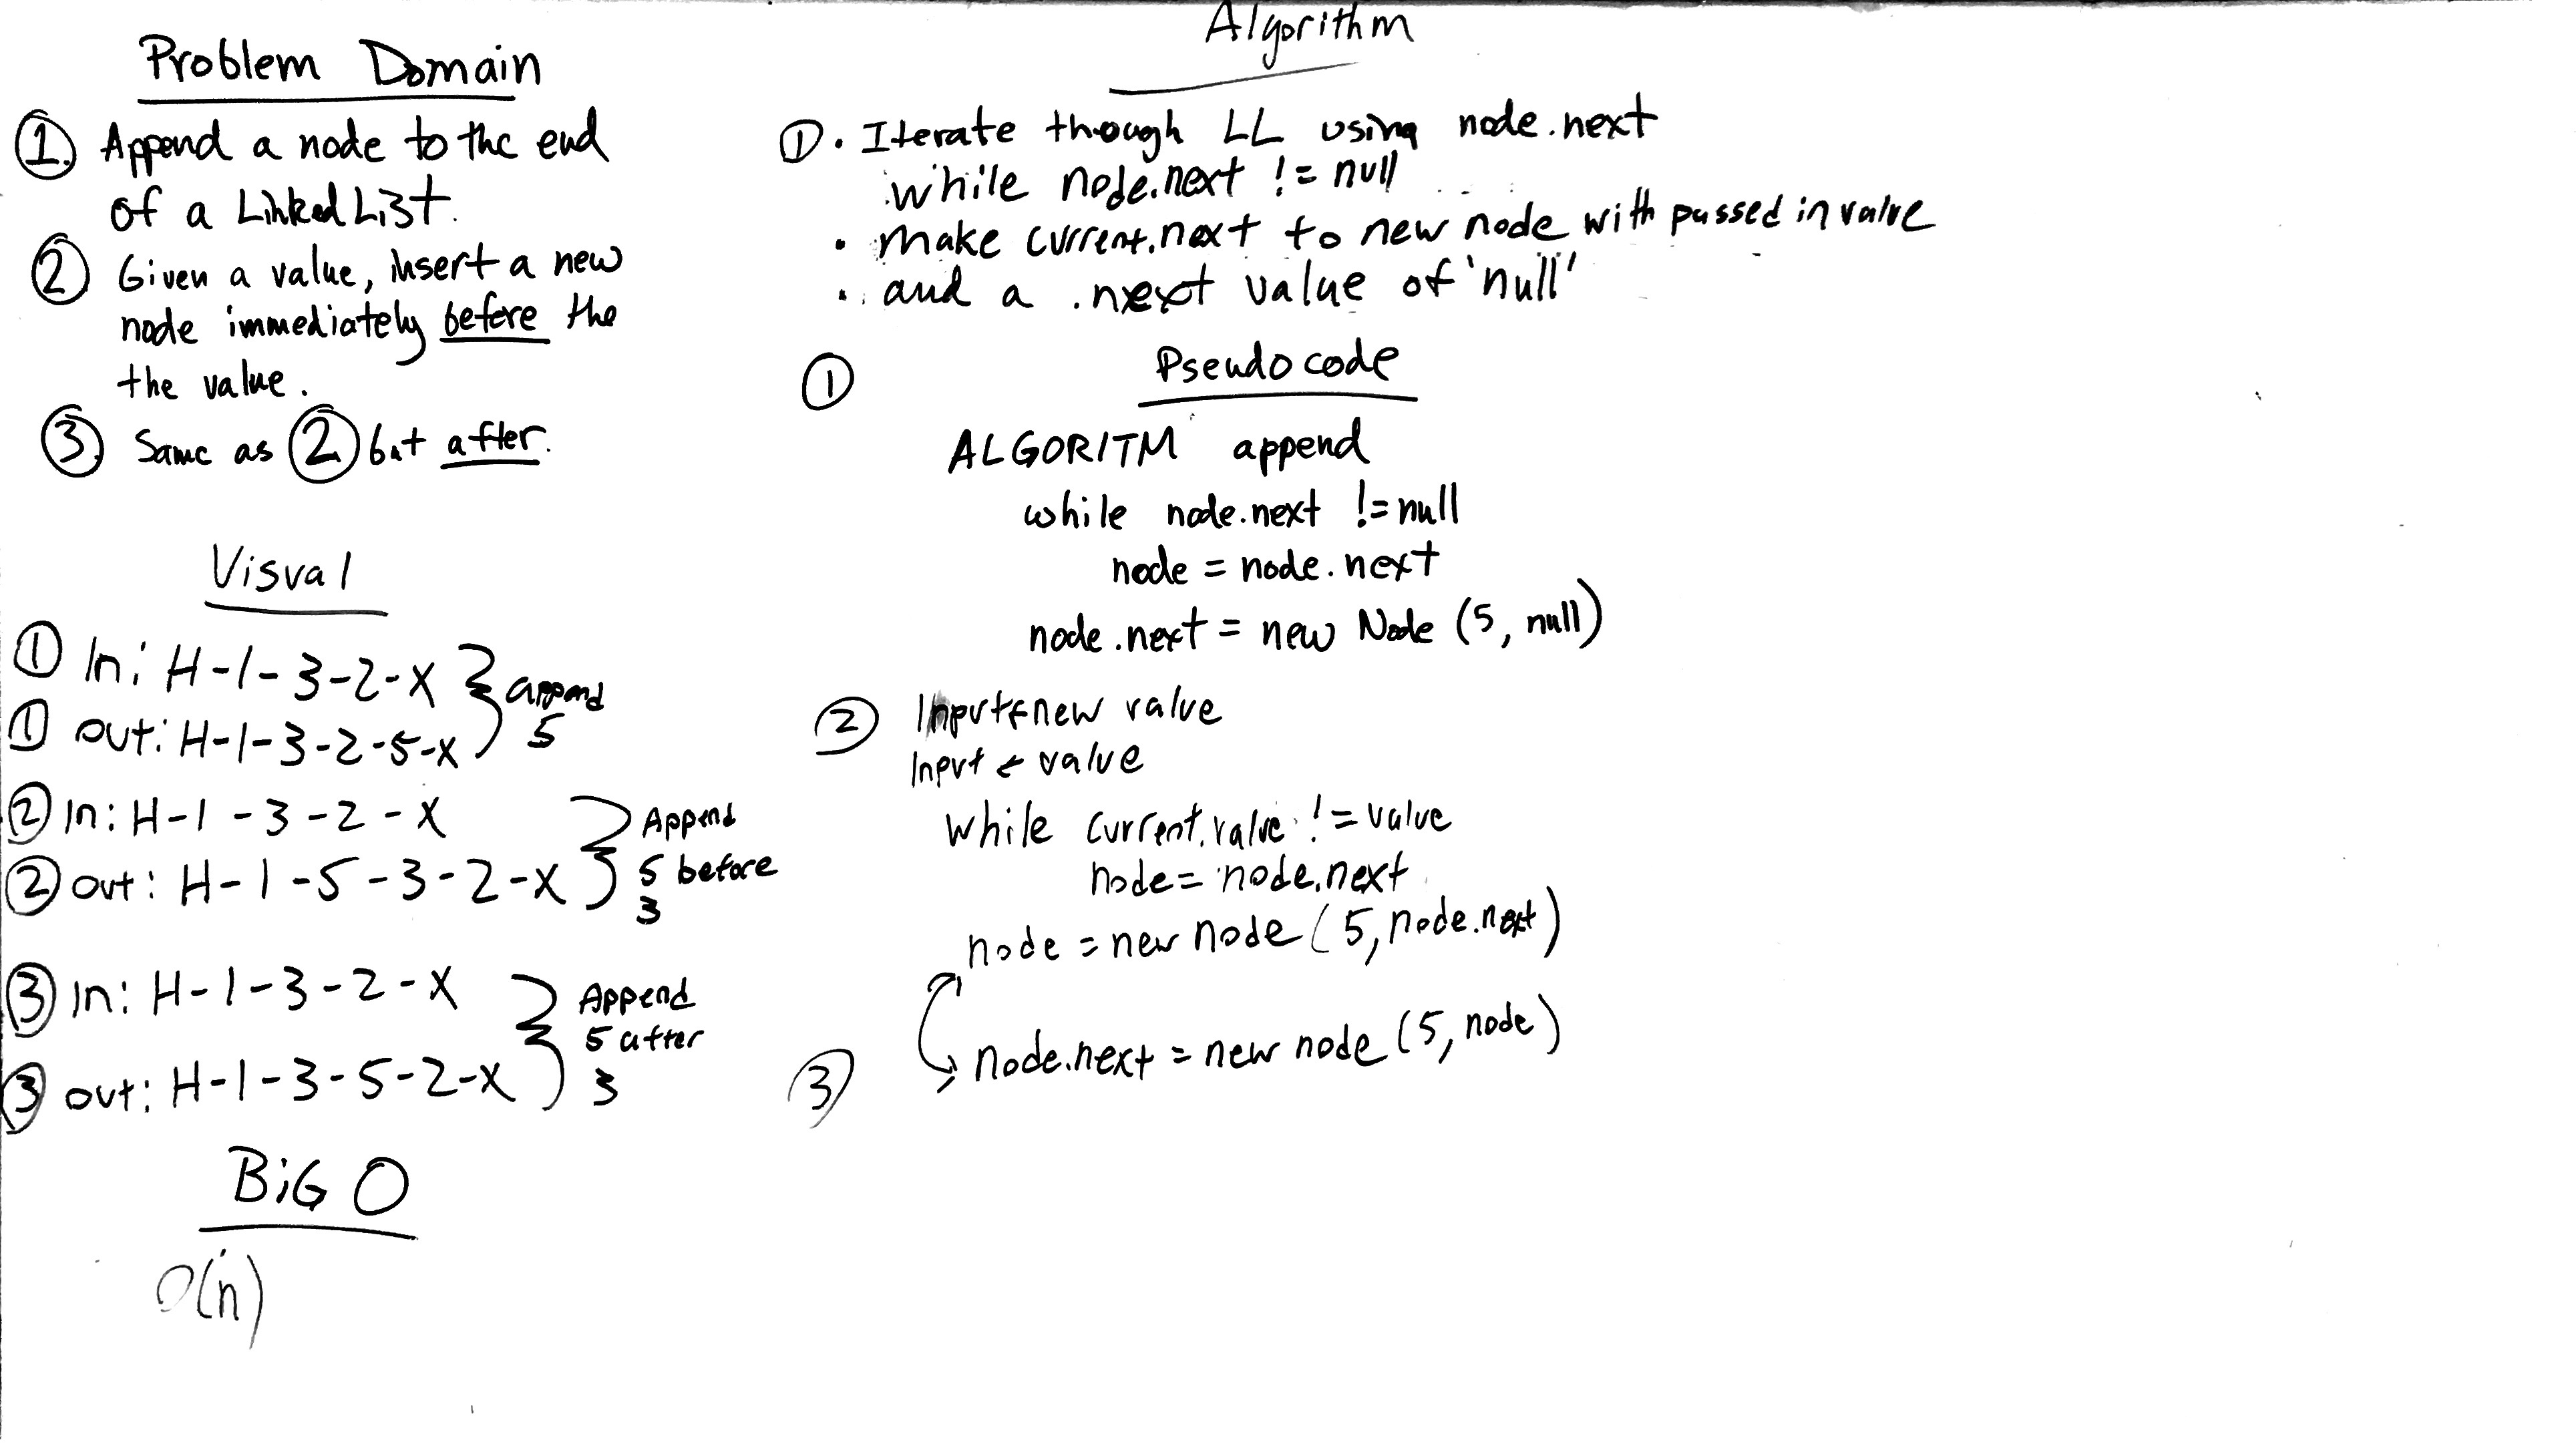 Problem Domain
1. Append a node to the end
of a Linked List.
2 Given a value, insert a new
node immediately before the
the value.
3. Same as 2 but after.
Visual
1 In: H-1-3-2-X
1 out: H-1-3-2-5-X
append
5
2 In: H-1-3-2-X
2 out: H-1-5-3-2-X
Append
5 before
3
3 In: H-1-3-2-X
3 out: H-1-3-5-2-X
Append
5 after
3
BiG O
O(n)
Algorithm
1. Iterate though LL using node.next
while node.next != null
• make current.next to new node with passed in value
• and a .next value of 'null'
1
Pseudo code
ALGORITM append
while node.next != null
node = node.next
node.next = new Node (5, null)
2 Input ← new value
Input ← value
while current.value != value
node = node.next
node = new node (5, node.next)
3 node.next = new node (5, node)